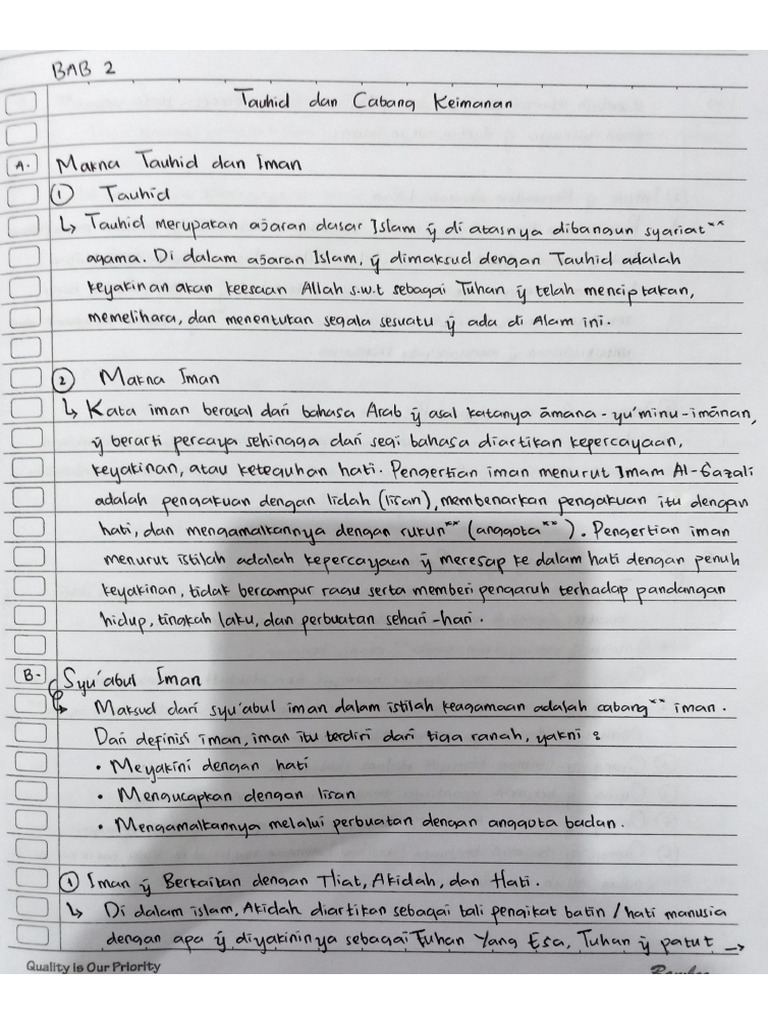 BAB 2
Tauhid dan Cabang Keimanan
A. Makna Tauhid dan Iman
① Tauhid
↳ Tauhid merupakan ajaran dasar Islam ÿ di atasnya dibangun syariat**
agama. Di dalam ajaran Islam, ÿ dimaksud dengan Tauhid adalah
keyakinan akan keesaan Allah s.w.t sebagai Tuhan ÿ telah menciptakan,
memelihara, dan menentukan segala sesuatu ÿ ada di Alam ini.
② Makna Iman
↳ Kata iman berasal dari bahasa Arab ÿ asal katanya āmana - yu'minu - imānan,
ÿ berarti percaya sehingga dari segi bahasa diartikan kepercayaan,
keyakinan, atau keteguhan hati. Pengertian iman menurut Imam Al-Gazali
adalah pengakuan dengan lidah (lisan), membenarkan pengakuan itu dengan
hati, dan mengamalkannya dengan rukun** (anggota**). Pengertian iman
menurut istilah adalah kepercayaan ÿ meresap ke dalam hati dengan penuh
keyakinan, tidak bercampur ragu serta memberi pengaruh terhadap pandangan
hidup, tingkah laku, dan perbuatan sehari-hari.
B. Syu'abul Iman
↳ Maksud dari syu'abul iman dalam istilah keagamaan adalah cabang** iman.
Dari definisi iman, iman itu terdiri dari tiga ranah, yakni :
• Meyakini dengan hati
• Mengucapkan dengan lisan
• Mengamalkannya melalui perbuatan dengan anggota badan.
① Iman ÿ Berkaitan dengan Niat, Akidah, dan Hati.
↳ Di dalam islam, Akidah diartikan sebagai tali pengikat batin / hati manusia
dengan apa ÿ diyakininya sebagai Tuhan Yang Esa, Tuhan ÿ patut →
Quality is Our Priority